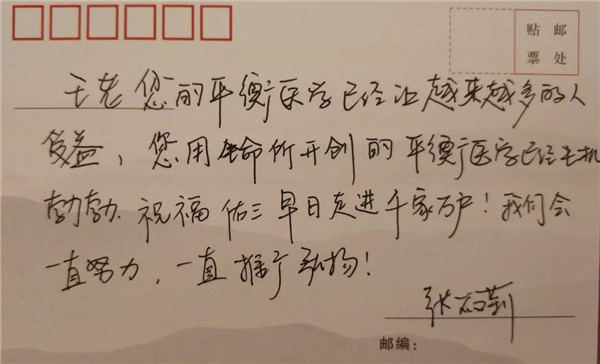 贴 邮
票 处
王老您的平衡医学已经让越来越多的人
受益，您用生命所开创的平衡医学已经生机
勃勃.祝福佑三早日走进千家万户！我们会
一直努力，一直推广弘扬！
张
邮编：